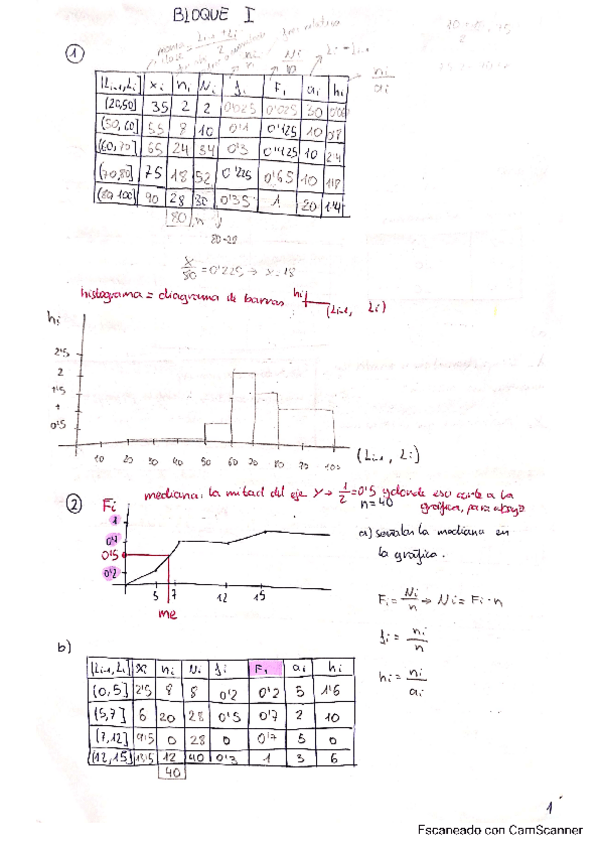 BLOQUE I
①
marca clase = Li-1 + Li / 2
ni / n
Ni / n
Li - Li-1
ni / ai
[Li-1, Li] xi ni Ni fi Fi ai hi
[20,50] 35 2 2 0'025 0'025 30
(50,60] 55 8 10 0'1 0'125 10 0'8
(60,70] 65 24 34 0'3 10 2'4
(70,80] 75 18 52 0'225 0'65 10 1'8
(80,100] 90 28 80 0'35 1 20 1'4
80 n
x/80 = 0'225 → x = 18
histograma = diagrama de barras hi (Li-1, Li)
hi
2'5
2
1'5
1
0'5
10 20 30 40 50 60 70 80 90 100 (Li-1, Li)
② mediana: la mitad del eje Y → 1/2 = 0'5 y donde eso corte a la
gráfica, para abajo
n=40
Fi
1
0'7
0'5
0'2
5 7 12 15
me
a) señalar la mediana en
la gráfica.
Fi = Ni/n → Ni = Fi · n
fi = ni/n
hi = ni/ai
b)
[Li-1, Li] xi ni Ni fi Fi ai hi
(0,5] 2'5 8 8 0'2 0'2 5 1'6
(5,7] 6 20 28 0'5 0'7 2 10
(7,12] 9'5 0 28 0 0'7 5 0
(12,15] 13'5 12 40 0'3 1 3 6
40
1
Escaneado con CamScanner